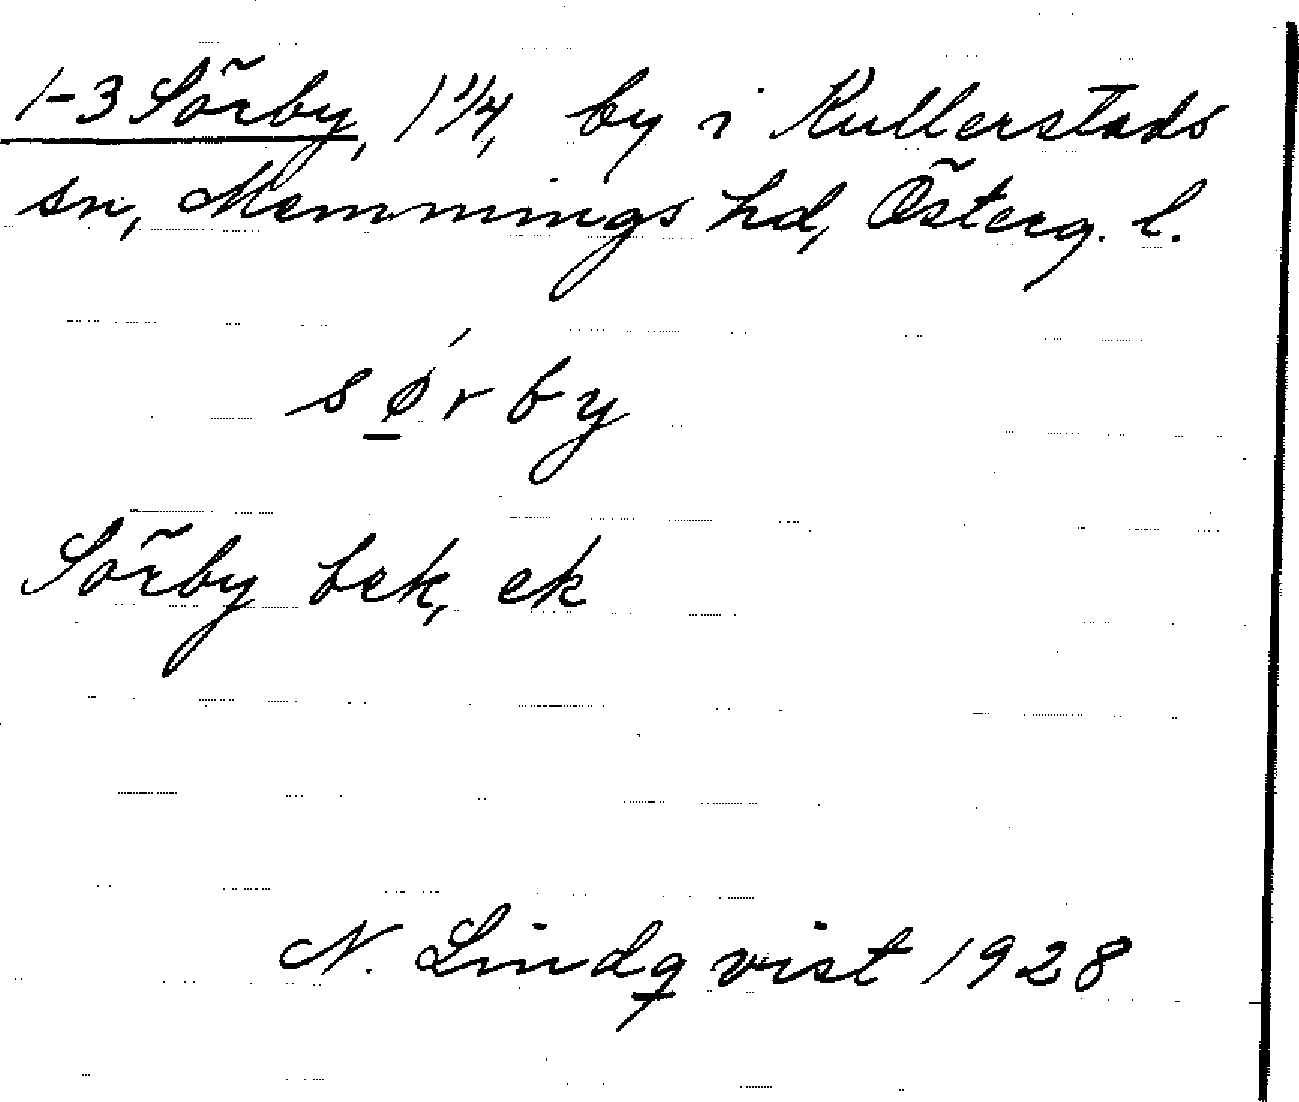 1-3 Sörby, 1 1/4, by i Kullerstads
sn, Memmings hd, Österg. l.
sǿ̱rby
Sörby bek, ek
N. Lindqvist 1928